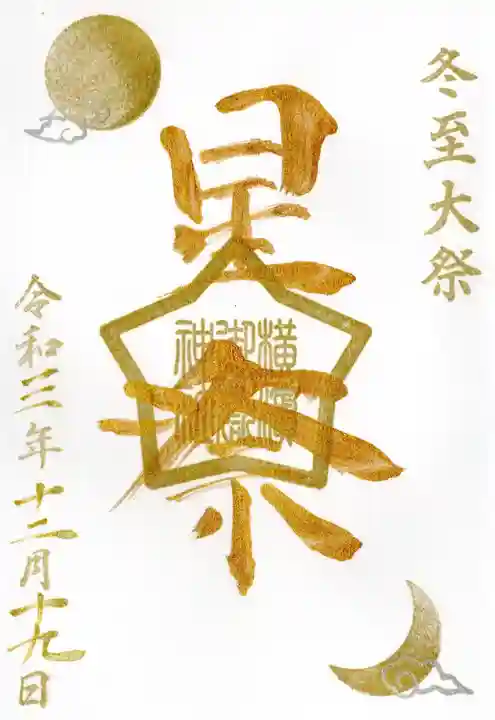 冬至大祭
星祭
横濱
御嶽
神社
令和三年十二月十九日